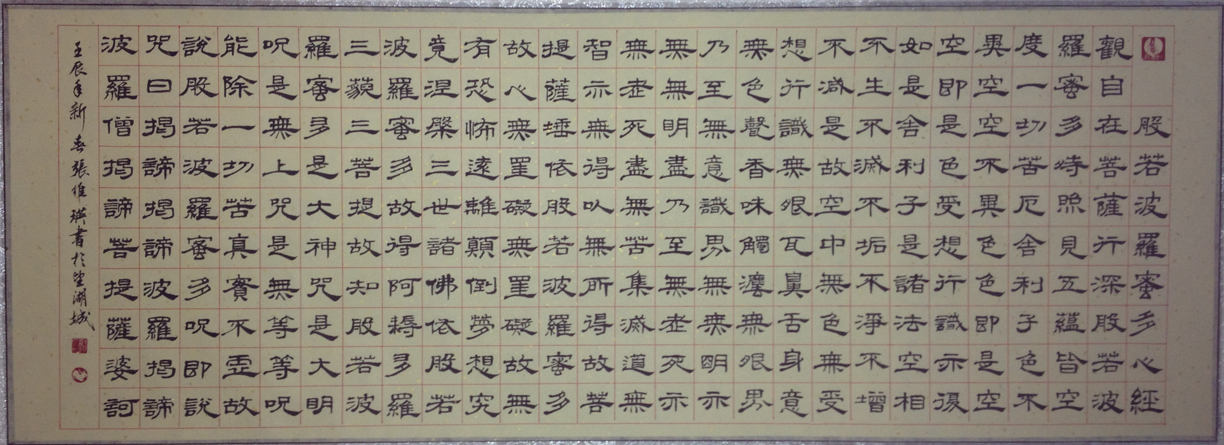 般若波羅蜜多心經
觀自在菩薩行深般若波
羅蜜多時照見五蘊皆空
度一切苦厄舍利子色不
異空空不異色色即是空
空即是色受想行識亦復
如是舍利子是諸法空相
不生不滅不垢不淨不增
不減是故空中無色無受
想行識無眼耳鼻舌身意
無色聲香味觸法無眼界
乃至無意識界無無明亦
無無明盡乃至無老死亦
無老死盡無苦集滅道無
智亦無得以無所得故菩
提薩埵依般若波羅蜜多
故心無罣礙無罣礙故無
有恐怖遠離顛倒夢想究
竟涅槃三世諸佛依般若
波羅蜜多故得阿耨多羅
三藐三菩提故知般若波
羅蜜多是大神咒是大明
呪是無上咒是無等等呪
能除一切苦真實不虛故
說般若波羅蜜多呪即說
咒曰揭諦揭諦波羅揭諦
波羅僧揭諦菩提薩婆訶
壬辰年新春張維瑛書於望湖城